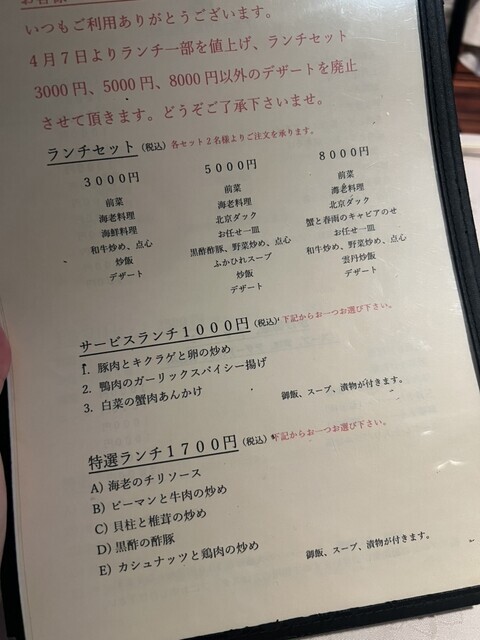 お客様
いつもご利用ありがとうございます。
4月7日よりランチ一部を値上げ、ランチセット
3000円、5000円、8000円以外のデザートを廃止
させて頂きます。どうぞご了承下さいませ。
ランチセット (税込) 各セット2名様よりご注文を承ります。
3000円
前菜
海老料理
海鮮料理
和牛炒め、点心
炒飯
デザート
5000円
前菜
海老料理
北京ダック
お任せ一皿
黒酢酢豚、野菜炒め、点心
ふかひれスープ
炒飯
デザート
8000円
前菜
海老料理
北京ダック
蟹と春雨のキャビアのせ
お任せ一皿
和牛炒め、野菜炒め、点心
雲丹炒飯
デザート
サービスランチ1000円 (税込) 下記からお一つお選び下さい。
1. 豚肉とキクラゲと卵の炒め
2. 鴨肉のガーリックスパイシー揚げ
3. 白菜の蟹肉あんかけ
御飯、スープ、漬物が付きます。
特選ランチ1700円 (税込) 下記からお一つお選び下さい。
A) 海老のチリソース
B) ピーマンと牛肉の炒め
C) 貝柱と椎茸の炒め
D) 黒酢の酢豚
E) カシュナッツと鶏肉の炒め
御飯、スープ、漬物が付きます。